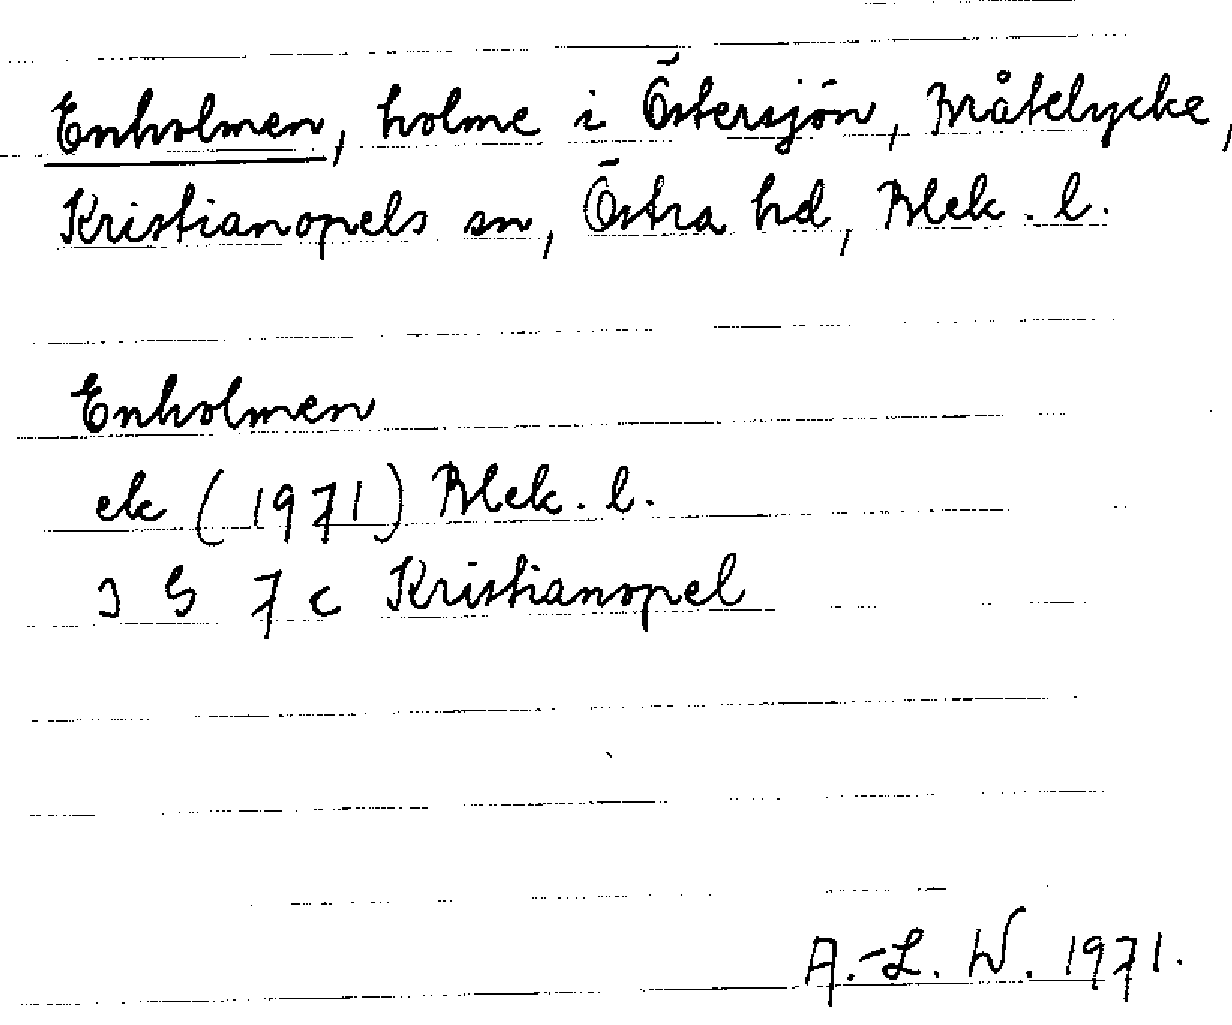 Enholmen, holme i Östersjön, Bråtelycke,
Kristianopels sn, Östra hd, Blek. l.
Enholmen
ek (1971) Blek. l.
3 G 7 c Kristianopel
A.-L. W. 1971.